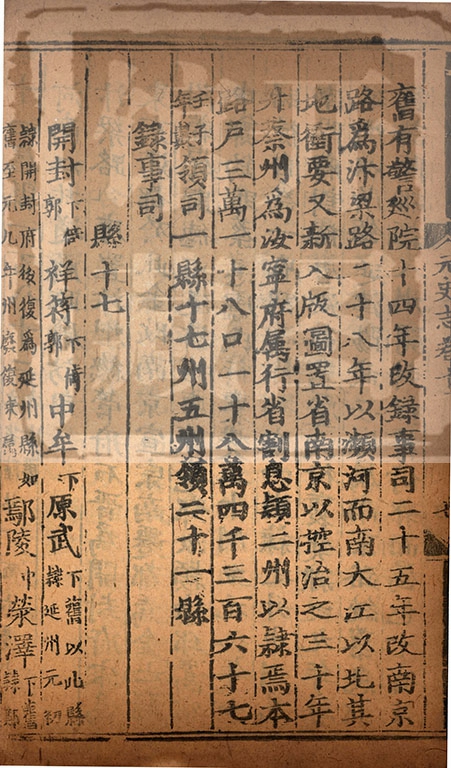 舊有警巡院十四年改錄事司二十五年改南京
路為汴梁路二十八年以瀕河而南大江以北其
地衝要又新入版圖置省南京以控治之三十年
升蔡州為汝寧府屬行省割息潁二州以隸焉本
路戶三萬一十八口一十八萬四千三百六十七
壬子年數領司一縣十七州五州領二十一縣
錄事司
縣十七
開封下倚郭祥符下倚郭中牟下原武下舊以此縣隸延州元初
隸開封府後復為延州縣如舊至元九年州廢復來屬鄢陵中滎澤下舊隸鄭